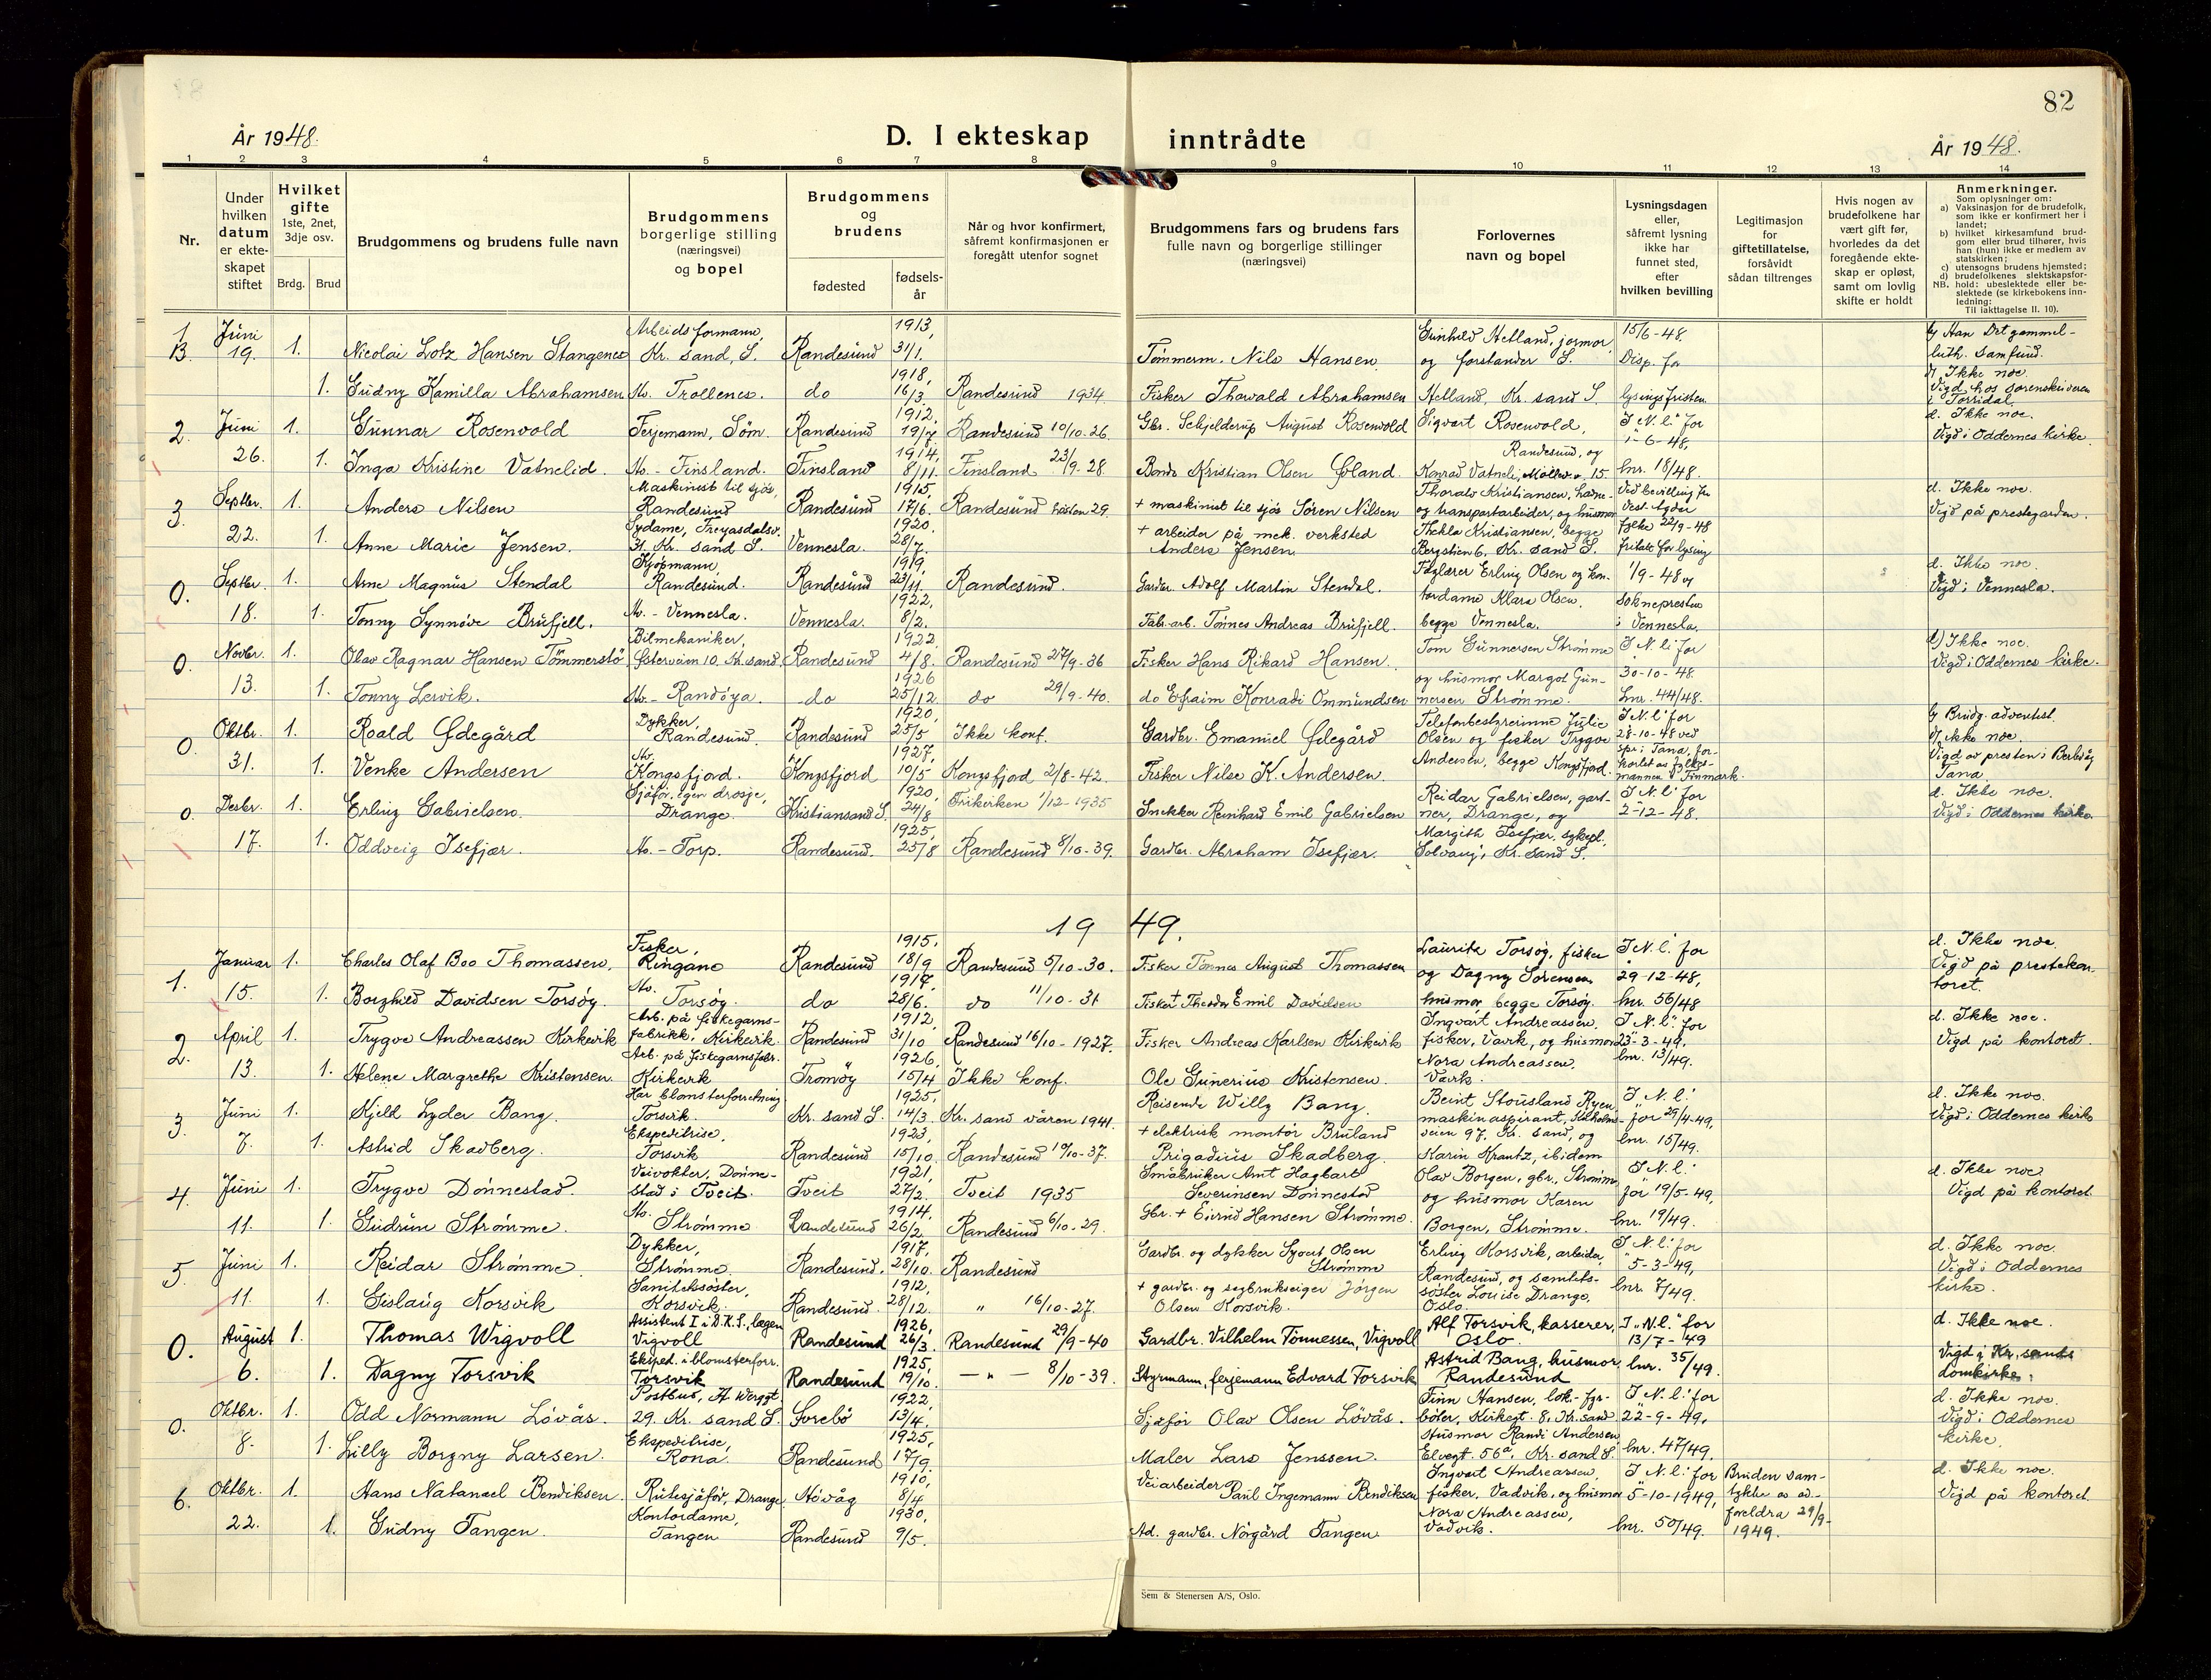 82
År 1948.
D. I ekteskap inntrådte
År 1948.
1 2 3 4 5 6 7 8 9 10 11 12 13 14
Nr.
Under hvilken datum er ekteskapet stiftet
Hvilket gifte
1ste, 2net, 3dje osv.
Brdg. Brud
Brudgommens og brudens fulle navn
Brudgommens borgerlige stilling (næringsvei) og bopel
Brudgommens og brudens
fødested
fødselsår
Når og hvor konfirmert, såfremt konfirmasjonen er foregått utenfor sognet
Brudgommens fars og brudens fars fulle navn og borgerlige stillinger (næringsvei)
Forlovernes navn og bopel
Lysningsdagen eller, såfremt lysning ikke har funnet sted, efter hvilken bevilling
Legitimasjon for giftetillatelse, forsåvidt sådan tiltrenges
Hvis nogen av brudefolkene har vært gift før, hvorledes da det foregående ekteskap er opløst, samt om lovlig skifte er holdt
Anmerkninger.
Som oplysninger om:
a) Vaksinasjon for de brudefolk, som ikke er konfirmert her i landet;
b) hvilket kirkesamfund brudgom eller brud tilhører, hvis han (hun) ikke er medlem av statskirken;
c) utensogns brudens hjemsted;
d) brudefolkenes slektskapsforhold: ubeslektede eller beslektede (se kirkebokens innledning:
NB.
Til iakttagelse II. 10).
Juni 19. 1. Nicolai Lotz Hansen Stangenes Arbeidsformann, Kr. sand, S. Randesund 1913, 3/1. Tømmerm. Nils Hansen. Gunhild Helland, jormor og forstander S. 15/6-48. Disp. for Han Det gammel-luth. Samfund.
1. Gudny Kamilla Abrahamsen Ms. Trollenes. do 1918, 16/3. Randesund 1934. Fisker Thorvald Abrahamsen Helland, Kr. sand S. lysingsfristen. d) Ikke noe. Vigd hos sorenskriveren i Torridal.
2. Juni 1. Gunnar Rosenvold Ferjemann, Søm. Randesund 1912, 19/7 Randesund 10/10-26. Gbr. Schjelderup August Rosenvold Sigvart Rosenvold, Randesund, og I "N. l" for 1-6-48, d. Ikke noe. Vigd i Oddernes kirke.
26. 1. Inga Kristine Vatnelid. Ms.- Finsland. Finsland 1914, 8/11. Finsland 23/9-28. Bonde Kristian Olsen Øland. Konrad Vatneli, Møllev. 15 lnr. 18/48.
3. Septbr. 1. Anders Nilsen Maskinist til sjøs, Randesund Randesund 1915, 17/6. Randesund høsten 29. + maskinist til sjøs Sören Nilsen Thoralv Kristiansen, havne- og transportarbeider, og husmor Ved bevilling fra Vest-Agder d. Ikke noe. Vigd på prestegarden.
22. 1. Anne Marie Jensen. Sydame, Freyasdalsv. 31, Kr. sand S. Vennesla. 1920. 28/7. + arbeider på mek. verksted Anders Jensen. Thekla Kristiansen, begge Bergstien 6, Kr. sand S. fylke 22/9-48 fritak for lysing
0. Septbr. 1. Arne Magnus Stendal Kjøpmann, Randesund. Randesund 1919, 23/11. Randesund. Gardbr. Adolf Martin Stendal. Faglærer Erling Olsen og kon- 1/9-48 og d. Ikke noe. Vigd i Vennesla.
18. 1. Tonny Synnøve Brufjell. Ms.- Vennesla. Vennesla. 1922, 8/2. Fab. arb. Tönnes Andreas Brufjell. tordame Klara Olsen, begge Vennesla. Sokneprestn i Vennesla.
0. Novbr. 1. Olav Ragnar Hansen Tömmerstö Bilmekaniker, Østerveien 10. Kr. sand Randesund 1922 4/8. Randesund 27/9-36 Fisker Hans Rikard Hansen. Tom Gunnersen Strömme I "N. l" for d) Ikke noe. Vigd i Oddernes kirke.
13. 1. Tonny Lervik. Ms.- Randøya. do 1926 25/12. do 29/9-40. do Efraim Konradi Ommundsen og husmor Margot Gunnersen Strömme. 30-10-48. Lnr. 44/48.
0. Oktbr. 1. Roald Ødegård Dykker, Randesund. Randesund 1920, 25/5 Ikke konf. Gardbr. Emanuel Ødegård Telefonbestyrerinne Julie Olsen og fisker Trygve I "N. l" for 28-10-48 ved Brudg. adventist. d) ikke noe.
31. 1. Venke Andersen Ms. Kongsfjord. Kongsfjord 1927, 10/5 Kongsfjord 2/8-42. Fisker Nilse K. Andersen. Andersen, begge Kongsfjord. spr. i Tana, forkortet av fylkesmannen i Finmark. Vigd av presten i Berlevåg Tana.
0. Desbr. 1. Erling Gabrielsen. Sjåfør, egen drosje, Drange. Kristiansand S. 1920, 24/8 Frikirken 1/12-1935 Snekker Reinhard Emil Gabrielsen Reidar Gabrielsen, gartner, Drange, og I N. l" for 2-12-48. d. Ikke noe. Vigd i Oddernes kirke.
17. 1. Oddveig Isefjær. Ms.- Torp. Randesund. 1925, 25/8 Randesund 8/10-39. Gardbr. Abraham Isefjær. Margith Isefjær, sykepl. Solvang, Kr. sand S.
1949.
1. Januar 1. Charles Olaf Boo Thomassen. Fisker, Ringane Randesund 1915, 18/9 Randesund 5/10-30. Fisker Tönnes August Thomassen Laurits Torsøy, fisker I "N. l" for d. Ikke noe.
15. 1. Borghild Davidsen Torsøy. Ms. Torsøy. do 1917, 28/6. do 11/10-31 Fisker + Theodor Emil Davidsen og Dagny Sörensen husmor, begge Torsøy. 29-12-48, lnr. 56/48 Vigd på prestekontoret.
2. April 1. Trygve Andreassen Kirkevik Arb. på fiskegarnsfabrikk, Kirkevik. Randesund 1912, 31/10 Randesund 16/10-1927. Fisker Andreas Karlsen Kirkevik Ingvart Andreassen, fisker, Vavik, og husmor I "N. l" for 23-3-49, d. Ikke noe. Vigd på kontoret.
13. 1. Helene Margrethe Kristensen Arb. på fiskegarnsfabr. Kirkevik Tromöy 1926, 15/4 Ikke konf. Ole Gunerius Kristensen. Nora Andreassen, lnr. 13/49.
3. Juni 1. Kjell Lyder Bang. Har blomsterforretning Torsvik. Kr. sand S. 1925, 14/3. Kr. sand våren 1941. Reisende Willy Bang. Beint Stousland Ryen, maskinaspirant, Kilholmsveien 97, Kr. sand, og I "N. l" for 29/4-49, d. Ikke noe. Vigd i Oddernes kirke
7. 1. Astrid Skadberg. Ekspeditrise, Torsvik Randesund 1923, 15/10. Randesund 10/10-37. + elektrisk montör Bruland Prigadius Skadberg. Karin Krantz, ibidem lnr. 15/49.
4. Juni 1. Trygve Dönnestad. Veivokter, Dönnestad i Tveit. Tveit 1921, 27/2. Tveit 1935 Småbruker Arnt Hagbart Severinsen Dönnestad Olav Borgen, gbr., Strömme I "N. l" for 19/5-49, d. Ikke noe Vigd på kontoret.
11. 1. Gudrun Strömme. Ms. Strömme Randesund 1914, 26/2. Randesund 6/10-29. Gbr. + Eivind Hansen Strömme. og husmor Karen Borgen, Strömme. lnr. 19/49.
5. Juni 1. Reidar Strömme Dykker, Strömme Randesund, 1917, 28/10. Randesund Gardbr. og dykker Syvert Olsen Strömme Erling Korsvik, arbeider, I "N. l" for 5-3-49, d. Ikke noe. Vigd i Oddernes kirke.
11. 1. Gislaug Korsvik Sanitetssøster, Korsvik. Randesund 1912, 28/12. " 16/10-27. + gardbr. og sagbrukseiger Jörgen Olsen Korsvik. Randesund, og samitetssöster Louise Drange, Oslo. lnr. 7/49.
0. August 1. Thomas Wigvoll Assistent I i D.K.S., lagen Vigvoll Randesund 1926, 26/3. Randesund 29/9-40 Gardbr. Vilhelm Tönnessen, Vigvoll Alf Torsvik, kasserer, Oslo. I "N.l." for 13/7-49 d. Ikke noe.
6. 1. Dagny Torsvik Eksped. i blomsterforr. Torsvik Randesund 1925, 19/10. -"- 8/10-39. Styrmann, ferjemann Edvard Torsvik Astrid Bang, husmor, Randesund lnr. 35/49. Vigd i Kr. sands domkirke.
0. Oktbr. 1. Odd Normann Lövås. Postbud, H. Wergel. 29, Kr. sand S. Grebö 1922, 13/4. Sjåfør Olav Olsen Lövås. Finn Hansen, lok.-fyrböter, Kirkegt. 8, Kr. sand I "N. l" for 22-9-49, d. Ikke noe. Vigd i Oddernes kirke.
8. 1. Lilly Borgny Larsen. Ekspeditrise, Rona. Randesund 1925, 17/9. Maler Lars Jenssen. Husmor Randi Andersen Elvegt. 56a, Kr. sand S. lnr. 47/49.
6. Oktbr. 1. Hans Natanael Bendiksen. Rutesjåfør, Drange Hövåg 1910, 8/4 Veiarbeider Paul Ingemann Bendiksen Ingvart Andreassen, fisker, Vadvik, og husmor I "N. l" for 5-10-1949, Bruden samtykke av ad-foreldra 29/9-1949. d. Ikke noe. Vigd på kontoret.
22. 1. Gudny Tangen. Kontordame, Tangen Randesund 1930, 9/5. Ad. gardbr. Nörgård Tangen Nora Andreassen, Vadvik. lnr. 50/49.
Sem & Stenersen A/S, Oslo.